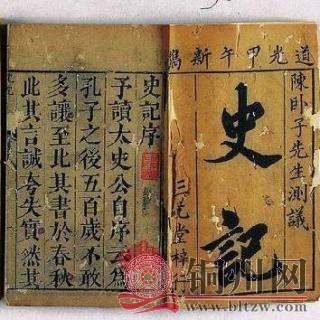 道光甲午新鐫
陳卧子先生測議
史記
史記序
予讀太史公自序云為
孔子之後五百歲不敢
多讓至此其書於春秋
此其言誠夸失實然其
铜川网
www.bltzw.com